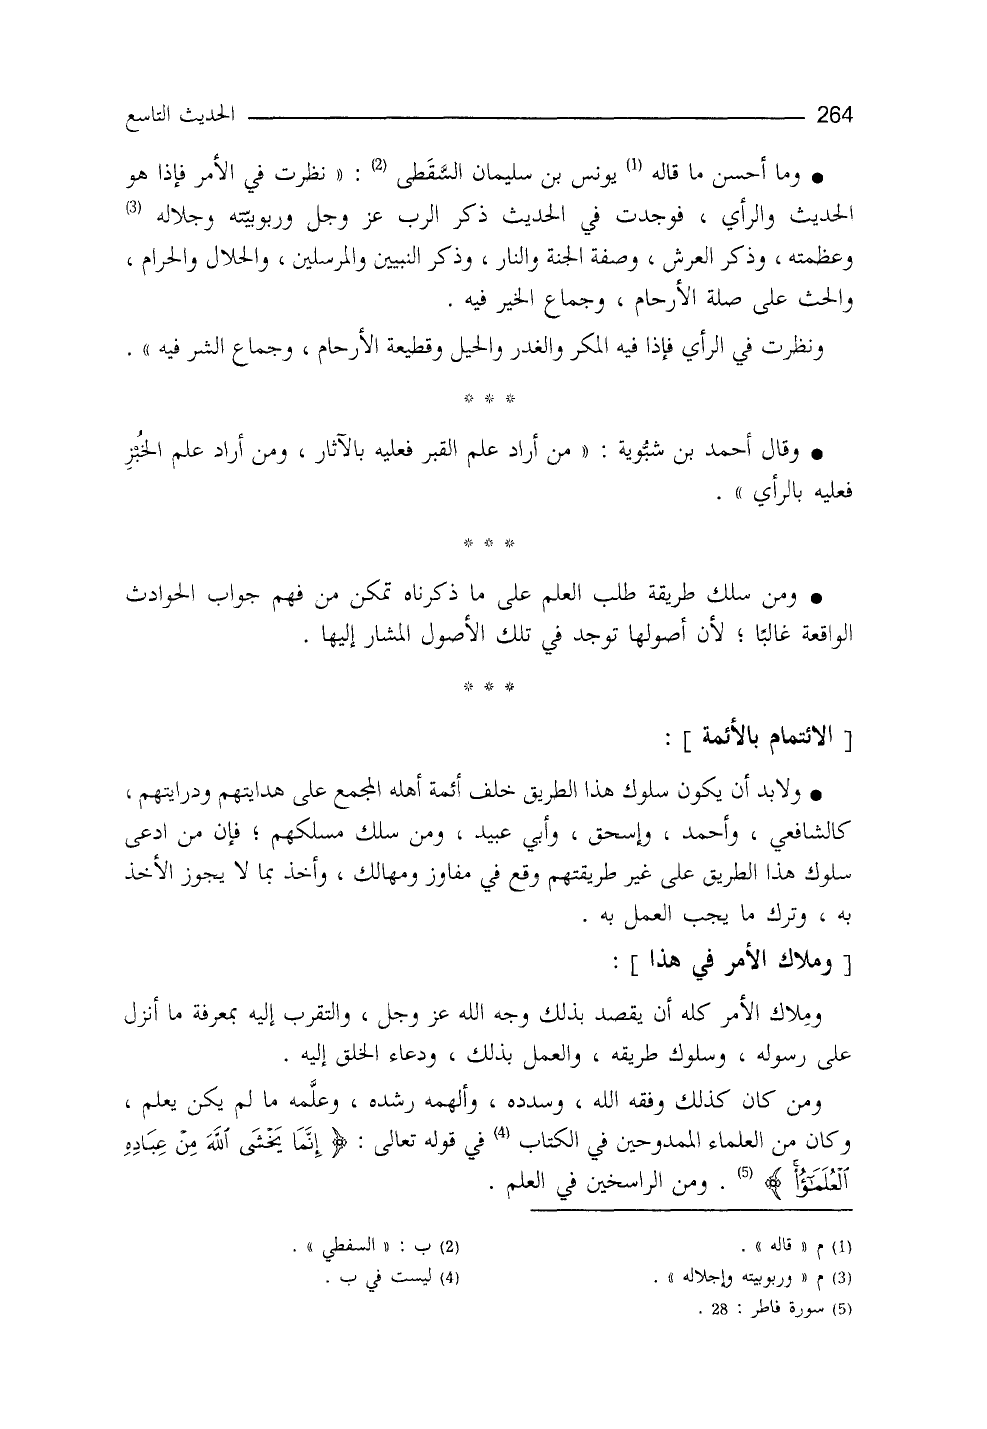 264 الحديث التاسع
● وما أحسن ما قاله (1) يونس بن سليمان السَّقَطى (2) : « نظرت في الأمر فإذا هو
الحديث والرأي ، فوجدت في الحديث ذكر الرب عز وجل وربوبيّته وجلاله (3)
وعظمته ، وذكر العرش ، وصفة الجنة والنار ، وذكر النبيين والمرسلين ، والحلال والحرام ،
والحث على صلة الأرحام ، وجماع الخير فيه .
ونظرت في الرأي فإذا فيه المكر والغدر والحيل وقطيعة الأرحام ، وجماع الشر فيه » .
* * *
● وقال أحمد بن شبُّوية : « من أراد علم القبر فعليه بالآثار ، ومن أراد علم الخُبْزِ
فعليه بالرأي » .
* * *
● ومن سلك طريقة طلب العلم على ما ذكرناه تمكن من فهم جواب الحوادث
الواقعة غالبًا ؛ لأن أصولها توجد في تلك الأصول المشار إليها .
* * *
[ الائتمام بالأئمة ] :
● ولابد أن يكون سلوك هذا الطريق خلف أئمة أهله المجمع على هدايتهم ودرايتهم ،
كالشافعي ، وأحمد ، وإسحق ، وأبي عبيد ، ومن سلك مسلكهم ؛ فإن من ادعى
سلوك هذا الطريق على غير طريقتهم وقع في مفاوز ومهالك ، وأخذ بما لا يجوز الأخذ
به ، وترك ما يجب العمل به .
[ وملاك الأمر في هذا ] :
ومِلاك الأمر كله أن يقصد بذلك وجه الله عز وجل ، والتقرب إليه بمعرفة ما أنزل
على رسوله ، وسلوك طريقه ، والعمل بذلك ، ودعاء الخلق إليه .
ومن كان كذلك وفقه الله ، وسدده ، وألهمه رشده ، وعلَّمه ما لم يكن يعلم ،
وكان من العلماء الممدوحين في الكتاب (4) في قوله تعالى : ﴿ إِنَّمَا يَخْشَى ٱللَّهَ مِنْ عِبَادِهِ
ٱلْعُلَمَـٰٓؤُاْ ﴾ (5) . ومن الراسخين في العلم .
(1) م « قاله » .
(2) ب : « السفطي » .
(3) م « وربوبيته وإجلاله » .
(4) ليست في ب .
(5) سورة فاطر : 28 .